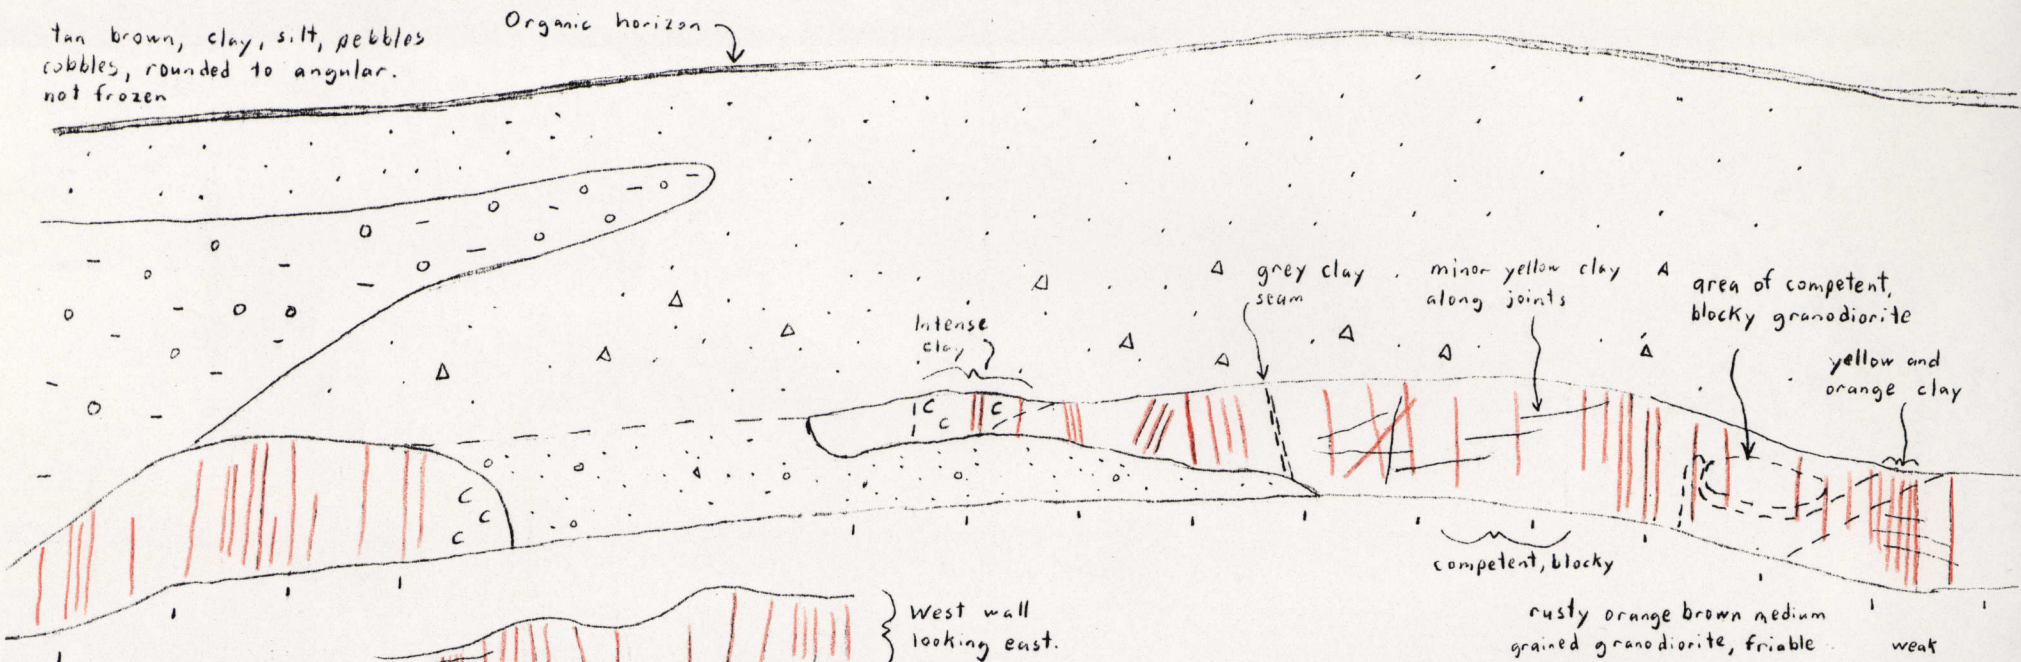 tan brown, clay, silt, pebbles
cobbles, rounded to angular.
not frozen
Organic horizon
Intense
clay
grey clay
seam
minor yellow clay
along joints
area of competent,
blocky granodiorite
yellow and
orange clay
C
C
C
C
C
C
competent, blocky
West wall
looking east.
rusty orange brown medium
grained granodiorite, friable
weak